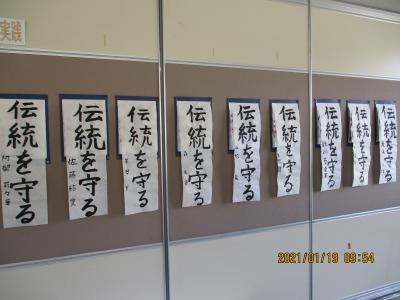 実践
伝統を守る
伝統を守る
佐藤
伝統を守る
伝統を守る
伝統を守る
伝統を守る
伝統を守る
伝統を守る
伝統を守る
2021/01/19 09:54